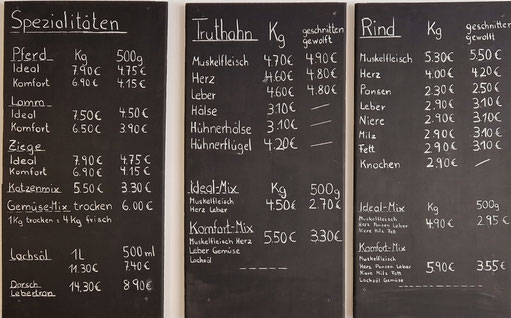 Spezialitäten
Pferd Kg 500g
Ideal 7.90€ 4.75€
Komfort 6.90€ 4.15€
Lamm
Ideal 7.50€ 4.50€
Komfort 6.50€ 3.90€
Ziege
Ideal 7.90€ 4.75€
Komfort 6.90€ 4.15€
Katzenmix 5.50€ 3.30€
Gemüse-Mix trocken 6.00€
1Kg trocken = 4Kg frisch
Lachsöl 1L 500ml
11.30€ 7.40€
Dorsch Lebertran 14.30€ 8.90€
Truthahn Kg geschnitten gewolft
Muskelfleisch 4.70€ 4.90€
Herz 4.60€ 4.80€
Leber 4.60€ 4.80€
Hälse 3.10€ —
Hühnerhälse 3.10€ —
Hühnerflügel 4.20€ —
Ideal-Mix Kg 500g
Muskelfleisch
Herz Leber 4.50€ 2.70€
Komfort-Mix
Muskelfleisch Herz 5.50€ 3.30€
Leber Gemüse
Lachsöl
Rind Kg geschnitten gewolft
Muskelfleisch 5.30€ 5.50€
Herz 4.00€ 4.20€
Pansen 2.30€ 2.50€
Leber 2.90€ 3.10€
Niere 2.90€ 3.10€
Milz 2.90€ 3.10€
Fett 2.90€ 3.10€
Knochen 2.90€ —
Ideal-Mix Kg 500g
Muskelfleisch
Herz Pansen Leber 4.90€ 2.95€
Niere Milz Fett
Komfort-Mix
Muskelfleisch
Herz Pansen Leber 5.90€ 3.55€
Niere Milz Fett
Lachsöl Gemüse